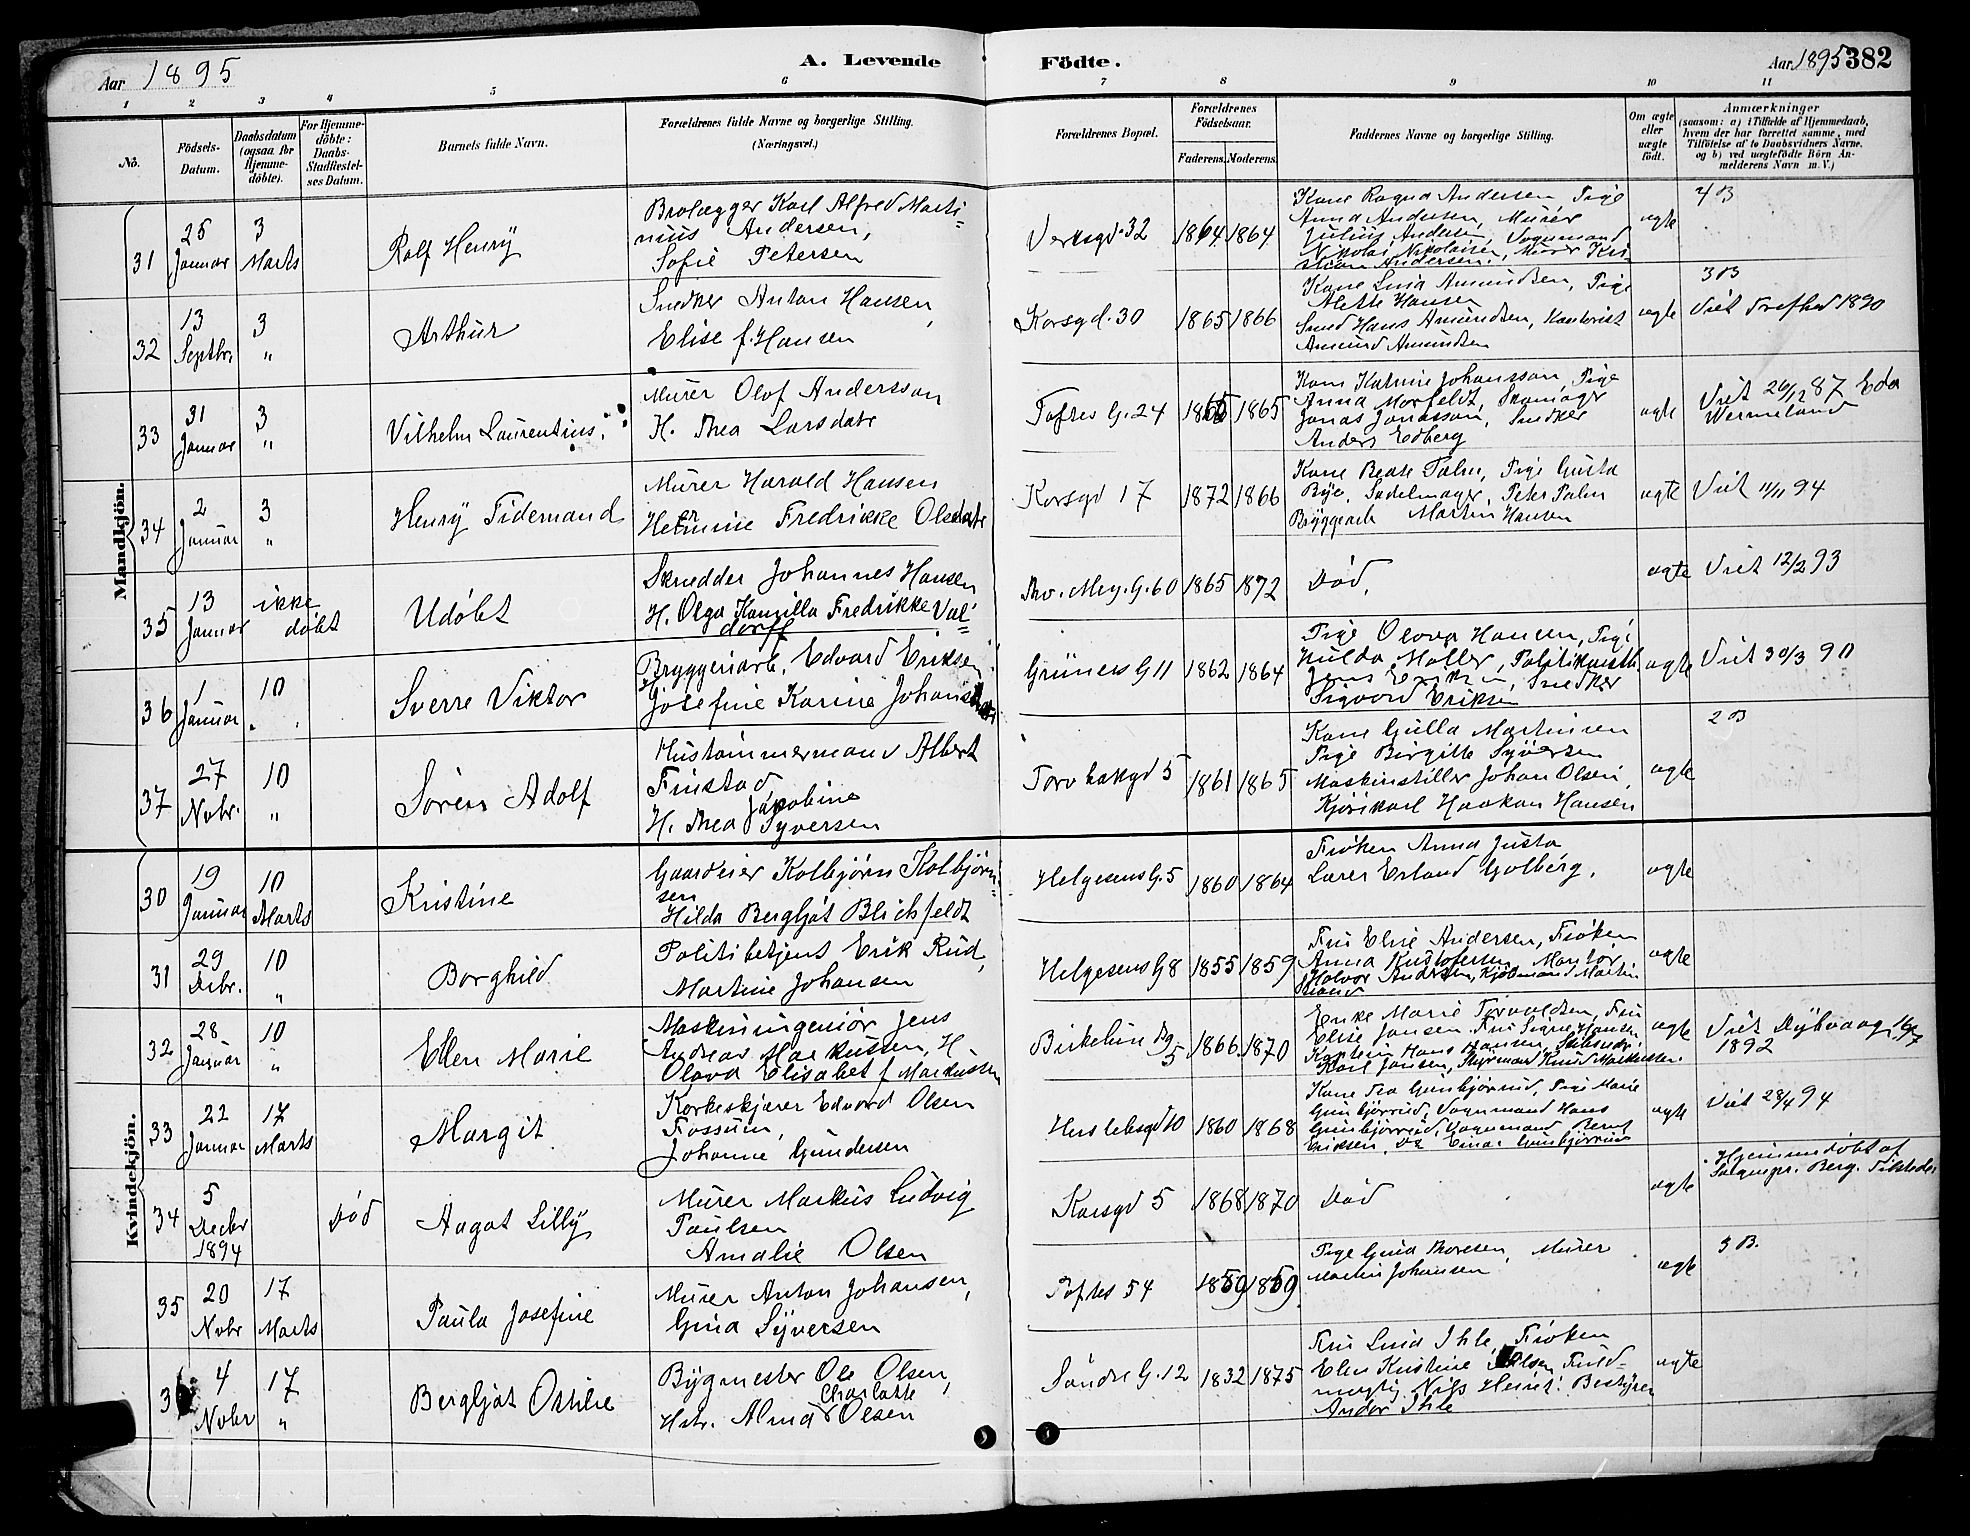 Aar 1895
A. Levende Födte.
Aar 1895 382
1 2 3 4 5 6 7 8 9 10 11
No.
Födsels-
Datum.
Daabsdatum
(ogsaa for
Hjemme-
döbte).
For Hjemme-
döbte:
Daabs-
Stadfæstel-
ses Datum.
Barnets fulde Navn.
Forældrenes fulde Navne og borgerlige Stilling.
(Næringsvei.)
Forældrenes Bopæl.
Forældrenes
Födselsaar.
Faderens. Moderens.
Faddernes Navne og borgerlige Stilling.
Om ægte
eller
uægte
født.
Anmærkninger
(saasom: a) i Tilfælde af Hjemmedaab,
hvem der har forrettet samme, med
Tilföielse af to Daabsvidners Navne,
og b) ved uægtefödte Börn An-
melderens Navn m. V.)
Mandkjön.
31
25
Januar
3
Marts
Rolf Henry
Brolægger Karl Alfred Marti-
nius Andersen,
Sofie Petersen
Verksgd. 32
1864 1864
Kone Ragna Andersen, Pige
Anna Andersen, Murer
Julius Andersen, Vognmand
Nikolai Nikolaisen, Murer Kri-
stian Andersen.
ægte
4 B
32
13
Septbr.
3
"
Arthur
Snedker Anton Hansen,
Elise f. Hansen
Korsgd. 30
1865 1866
Kone Lina Amundsen, Pige
Alette Hansen
Smed Hans Amundsen, Kontorist
Amund Amundsen
ægte
3 B
Viet Trefhed 1890
33
31
Januar
3
"
Vilhelm Laurentius
Murer Olof Andersson
H. Thea Larsdatr
Toftes G. 24
1865
Anna Morfeldt, Skomager
Jonas Jonasson, Snedker
Anders Edberg
ægte
Viet 26/12 87 Eda
Wermeland
34
2
Januar
3
"
Henry Tidemand
Murer Harald Hansen
Hermine Fredrikke Olsdatr
Korsgd 17
1872 1866
Kone Beate Palm, Pige Gusta
Bye, Sadelmager Peter Palm
Bryggearb Martin Hansen
ægte
Viet 11/11 94
35
13
Januar
ikke
döbt
Udöbt
Skredder Johannes Hansen
H. Olga Kamilla Fredrikke Val-
dorff
Thv. Mey. G. 60
1865 1872
Död.
ægte
Viet 12/2 93
36
1
Januar
10
"
Sverre Viktor
Bryggeriarb. Edvard Eriksen
Josefine Karine
Grüners G 11
1862 1864
Pige Olava Hansen, Pige
Hulda Moller,
Snedker
Sigvard Eriksen
ægte
Viet 30/3 90
37
27
Nobr.
10
"
Sören Adolf
Hustömmermand Albert
Finstad
H. Thea Jakobine
Syversen
Torvbakgd 5
1861 1865
Kone Gulla Martinsen
Pige Birgitte Syversen
Maskinstiller Johan Olsen,
Kjörekarl Haakon Hansen
ægte
2 B
Kvindekjön.
30
19
Januar
10
Marts
Kristine
Gaardeier Kolbjörn Kolbjörn-
sen
Hilda Bergljot Blichfeldt
Helgesens G. 5
1860 1864
Fröken Anna Justa
Lærer Erland Golberg.
ægte
31
29
Decbr.
10
"
Borghild
Politibetjent Erik Rud,
Martine Johansen
Helgesens G 8
1855 1859
Fru Elise Andersen, Fröken
Anna Kristofersen, Montör
Halvor Andersen, Kjöbmand Martin
ægte
32
28
Januar
10
"
Ellen Marie
Maskiningeniör Jens
Andreas Markussen, H.
Olava Elisabet f Markussen
Birkelun
5
1866 1870
Enke Marie Torvaldsen, Fru
Elise Jansen, Fru Signe Hansen
Kaptein Hans Hansen, Skibsredr
Karl Jansen, Styrmand Knud Markussen.
ægte
Viet Dybvaag
1892
33
22
Januar
17
Marts
Margit
Korkeskjærer Edvard Olsen
Fossum,
Johanne Gundersen
Herslebsgd 10
1860 1868
Kone Tea Gunbjörrud, Pige Marie
Gunbjörrud, Vognmand Hans
Gunbjörrud, Vognmand Bernt
Eriksen, Do Einar Gunbjörrud
ægte
Viet 28/4 94
34
5
Decbr
1894
Död
Aagot Lilly
Murer Markus Ludvig
Paulsen
Amalie Olsen
Korsgd 5
1868 1870
Död
ægte
Hjemmedöbt af
Sognepr. Berg,
35
20
Nobr
17
Marts
Paula Josefine
Murer Anton Johansen,
Gina Syversen
Toftes 54
1859 1859
Pige Gina Thoresen, Murer
Martin Johansen
ægte
3 B.
3
4
Nobr
17
"
Bergljot Ottilie
Bygmester Ole Olsen,
Hstr. Alma Charlotte
Olsen
Söndre G. 12
1832 1875
Fru Lina Ihle, Fröken
Elen Kristine Olsen, Fuld-
mægtig Nils Heiret. Bestyrer
Andor Ihle
ægte